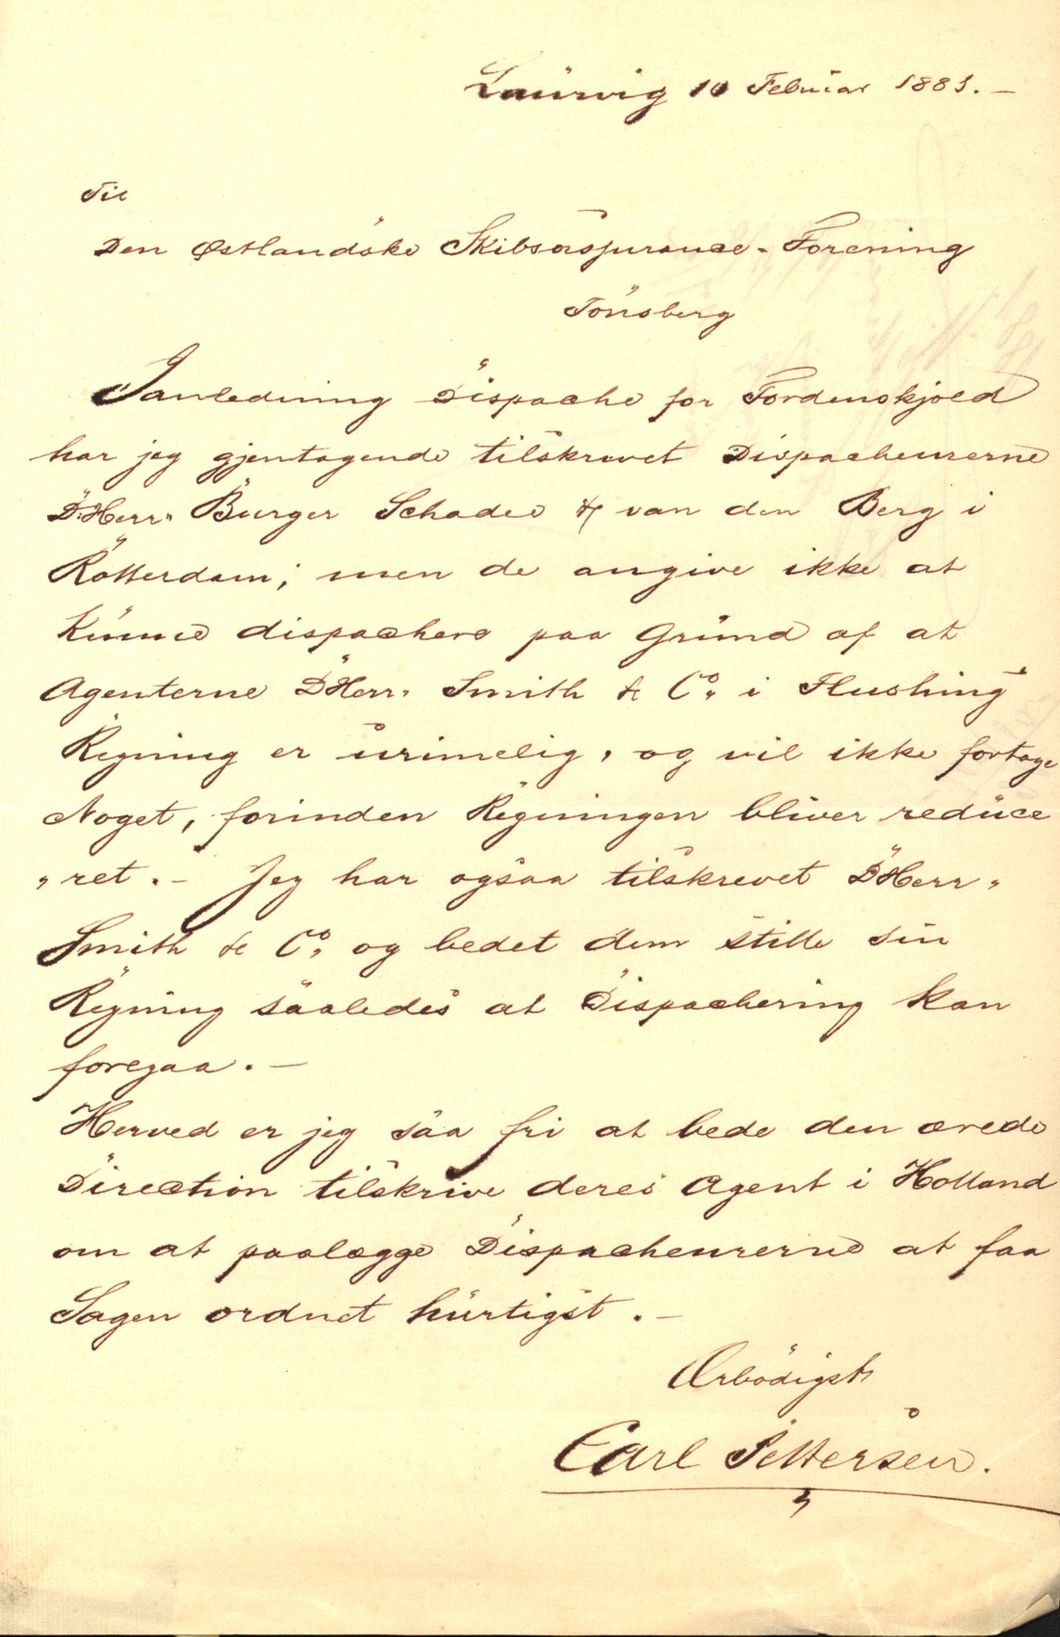 Laurvig 10 Februar 1883. -
Til
Den Østlandske Skibsassurance-Forening
Tönsberg
I anledning Dispache for Tordenskjold
har jeg gjentagende tilskrevet Dispacheurerne
D'Herr. Burger Schade & van den Berg i
Rotterdam; men de angive ikke at
kunne dispachere paa Grund af at
Agenterne D'Herr. Smith & Co. i Flushing
Regning er urimelig, og vil ikke fortage
Noget, forinden Regningen bliver reduce
„ret. - Jeg har ogsaa tilskrevet D'Herr.
Smith & Co. og bedet dem stille sin
Regning saaledes at Dispachering kan
foregaa. -
Herved er jeg saa fri at bede den ærede
Direction tilskrive deres Agent i Holland
om at paalægge Dispacheurerne at faa
Sagen ordnet hurtigst. -
Ærbödigst
Carl Pettersen.